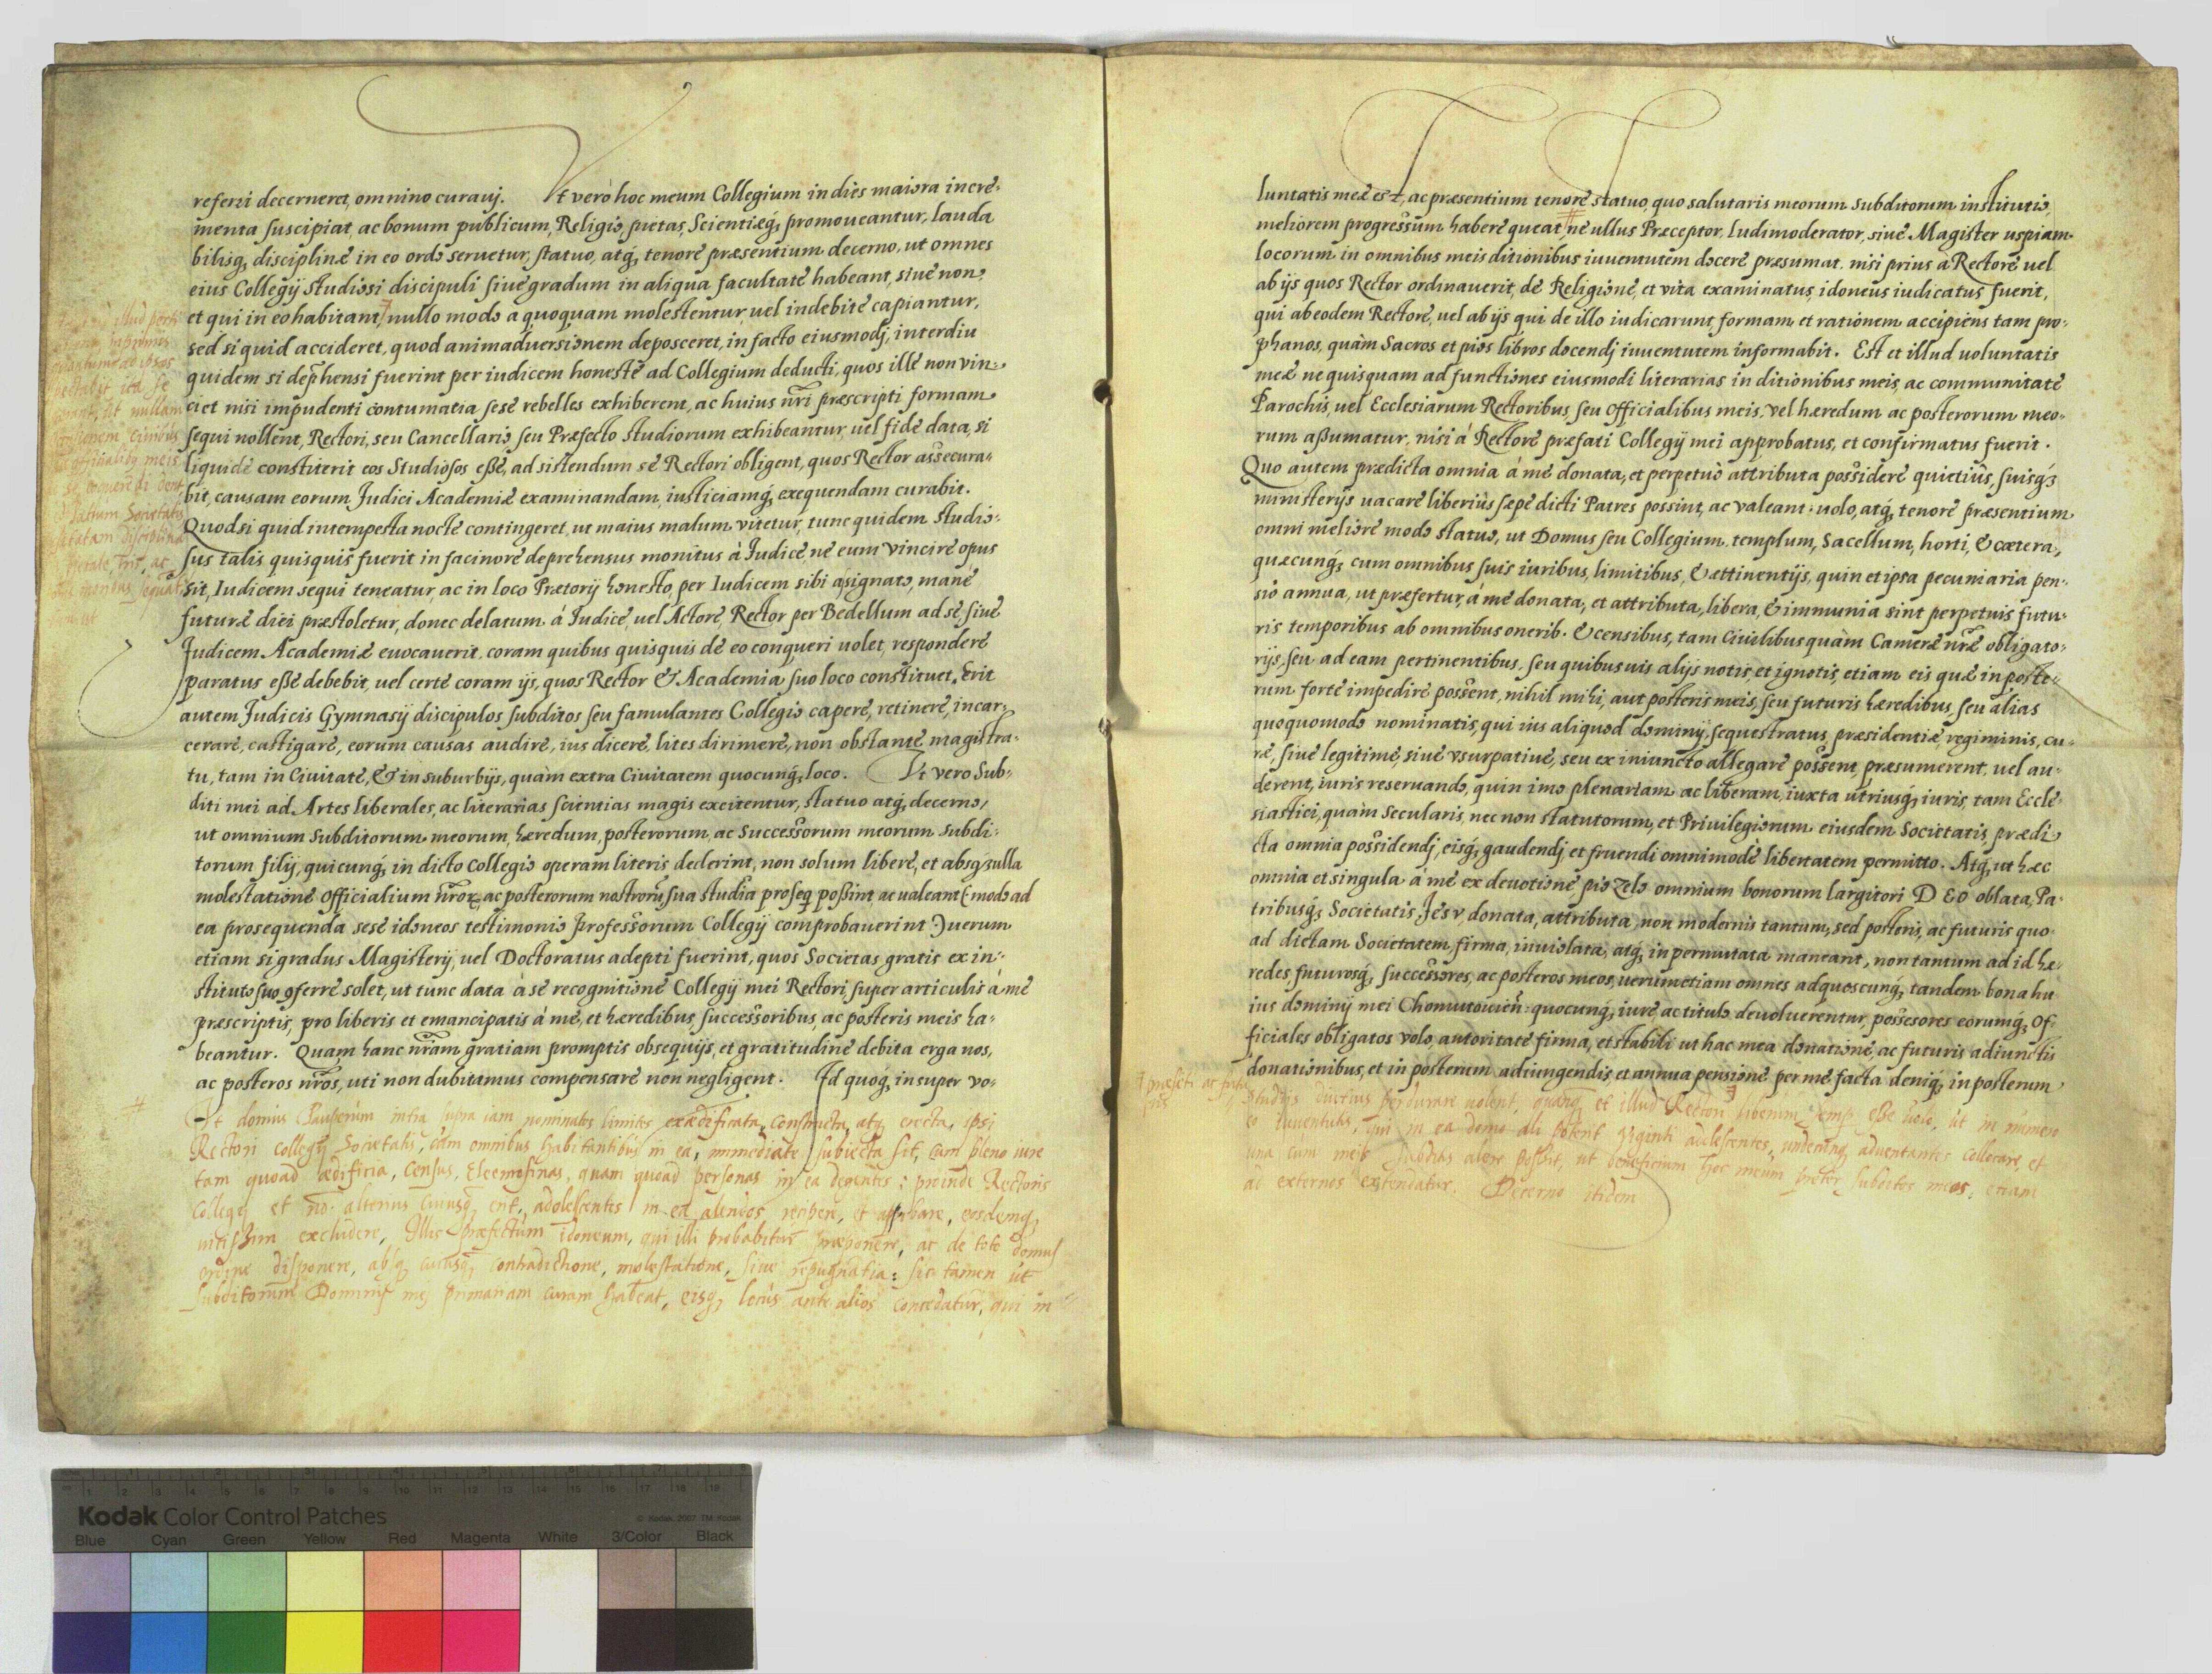 referri decerneret, omnino curavj. Vt verò hoc meum Collegium in dies maiora incre-
menta suscipiat ac bonum publicum, Religio, pietas, Scientięq; promoueantur, lauda
bilisq; disciplinæ in eo ordo seruetur, statuo, atq; tenore præsentium decerno, ut omnes
eius Collegij Studiosi discipuli siue gradum in aliqua facultate habeant, siue non,
et qui in eo habitant, nullo modo a quoquam molestentur, uel indebite capiantur,
sed si quid accideret, quod animaduersionem deposceret, in facto eiusmodj, interdiu
quidem si dep̄hensi fuerint per iudicem honestè ad Collegium deducti, quos ille non vin-
ciet nisi impudenti contumatia sese rebelles exhiberent, ac huius nr̄i præscripti formam
sequi nollent, Rectori, seu Cancellario seu Præfecto studiorum exhibeantur, uel fide data, si
liquidè constiterit eos Studiosos eße, ad sistendum se Rectori obligent, quos Rector assecura-
bit, causam eorum Judici Academiæ examinandam, iusticiamq; exequendam curabit.
Quodsi quid intempesta nocte contingeret, ut maius malum vitetur, tunc quidem studio-
sus talis quisquis fuerit in facinore deprehensus monitus à Judice, ne eum vincire opus
sit, Iudicem sequi teneatur, ac in loco Prætorij honesto, per Iudicem sibi aßignato, mane
futuræ diei præstoletur, donec delatum á Judice, uel Actore, Rector per Bedellum ad se, siue
Judicem Academiæ euocauerit, coram quibus quisquis de eo conqueri uolet, respondere
paratus eße debebit, uel certe coram ijs, quos Rector & Academia suo loco constituet, Erit
autem Judicis Gymnasij discipulos subditos seu famulantes Collegio capere, retinere, incar-
cerare, castigare, eorum causas audire, ius dicere, lites dirimere, non obstante magistra-
tu, tam in Ciuitate, & in suburbijs, quàm extra Ciuitatem quocunq; loco. Vt vero Sub-
diti mei ad Artes liberales, ac literarias scientias magis excitentur, statuo atq; decerno,
ut omnium Subditorum meorum, hæredum, posterorum, ac Successorum meorum subdi-
torum filij, quicunq; in dicto Collegio operam literis dederint, non solum libere, et absq; ulla
molestatione Officialium nr̄orꝝ, ac posterorum nostrorū, sua studia proseq̄ poßint, ac ualeant (modo ad
ea prosequenda sese idoneos testimonio Professorum Collegij comprobauerint) uerum
etiam si gradus Magisterij, uel Doctoratus adepti fuerint, quos Societas gratis ex in-
stituto suo 9ferre solet, ut tunc data à se recognitione Collegij mei Rectori, super articulis á me
præscriptis, pro liberis et emancipatis á me, et hæredibus, successoribus, ac posteris meis ha-
beantur. Quam hanc nr̄am gratiam promptis obsequijs, et gratitudine debita erga nos,
ac posteros nr̄os, uti non dubitamus compensare non negligent. Id quoq; insuper vo-
Vt domus Pauperum intra supra iam nominatos limites exædificata, constructa, atq; erecta, ipsi
Rectori Collegij Societatis, cum omnibus habitantibus in ea, immediate subiecta sit, cum pleno iure
tam quoad ædificia, Census, Eleemosinas, quam quoad personas in ea degentes: proinde Rectoris
Collegij et nō alterius cuiusq; erit, adolescentes in ea alendos recipere, et approbare, eosdemq;
vicissim excludere, Illis præfectum idoneum, qui illi probabitur præponere, ac de toto domus
ordine disponere, absq; cuiusq; contradictione, molestatione, siue repugnātia: sic tamen ut
subditorum Dominij mej primariam curam habeat, eisq; locus ante alios concedatur, qui in
luntatis meæ est, ac præsentium tenore statuo, quo salutaris meorum Subditorum institutio,
meliorem progressum habere queat, ne ullus Præceptor, ludimoderator, siue Magister uspiam
locorum in omnibus meis ditionibus iuuentutem docere præsumat, nisi prius a Rectore uel
ab ijs quos Rector ordinauerit, de Religione, et vita examinatus, idoneus iudicatus fuerit,
qui ab eodem Rectore, uel ab ijs qui de illo iudicarunt, formam et rationem accipiens tam pro-
phanos, quàm Sacros et pios libros docendj iuuentutem informabit. Est et illud uoluntatis
meæ ne quisquam ad functiones eiusmodi literarias in ditionibus meis, ac communitate
Parochis, uel Ecclesiarum Rectoribus, seu Officialibus meis, vel hæredum ac posterorum meo-
rum aßumatur, nisi á Rectore præfati Collegij mei approbatus, et confirmatus fuerit.
Quo autem prædicta omnia á me donata, et perpetuò attributa possidere quietiùs, suisq;
ministerijs uacare liberiùs sæpe dicti Patres possint, ac valeant: uolo, atq; tenore præsentium
omni meliore modo statuo, ut Domus seu Collegium, templum, Sacellum, horti, & cætera,
quæcunq; cum omnibus suis iuribus, limitibus, & attinentijs, quin et ipsa pecuniaria pen-
sio annua, ut præfertur, á me donata, et attributa, libera, & immunia sint perpetuis futu-
ris temporibus ab omnibus onerib. & censibus, tam Ciuilibus quàm Cameræ nr̄æ obligato-
rijs, seu ad eam pertinentibus, seu quibusuis alijs notis, et ignotis, etiam eis quæ in poste-
rum forte impedire possent, nihil mihi, aut posteris meis, seu futuris hæredibus, seu alias
quoquomodo nominatis, qui ius aliquod dominij, sequestratus, præsidentiæ, regiminis, cu-
ræ, siue legitimè, siue vsurpatiue, seu ex iniuncto allegare possent, præsumerent, uel au-
derent, iuris reseruando, quin imo plenariam ac liberam, iuxta utriusq; iuris, tam Eccle-
siastici, quàm Secularis, nec non statutorum, et Priuilegiorum eiusdem Societatis, prædi
cta omnia possidendj, eisq; gaudendj et fruendi omnimodè libertatem permitto. Atq; ut hæc
omnia et singula á me ex deuotione, pio zelo omnium bonorum largitori DEO oblata, Pa-
tribusq; Societatis Jesv donata, attributa, non modernis tantum, sed posteris, ac futuris quo-
ad dictam Societatem firma, inuiolata, atq; in permutata maneant, non tantum ad id hæ-
redes, futurosq; successores, ac posteros meos, uerum etiam omnes ad quoscunq; tandem bona hu
ius dominij mei Chomutouien: quocunq; iure, ac titulo deuoluerentur, possesores eorumq; Of-
ficiales obligatos volo, autoritate firma, et stabili ut hac mea donatione, ac futuris adiunctis
donationibus, et in posterum adiungendis, et annua pensione per me facta deniq; in posterum
studijs diutius perdurare uolent, quanq; et illud Rectori liberum semp̄ eße uolo, ut in numero
eo iuuentutis, qui in ea domo ali poterit, viginti adolescentes, undecunq; aduentantes collocare, et
una cum meis subditis alere possit, ut beneficium hoc meum præter subditos meos, etiam
ad externos extendatur. Decerno itidem